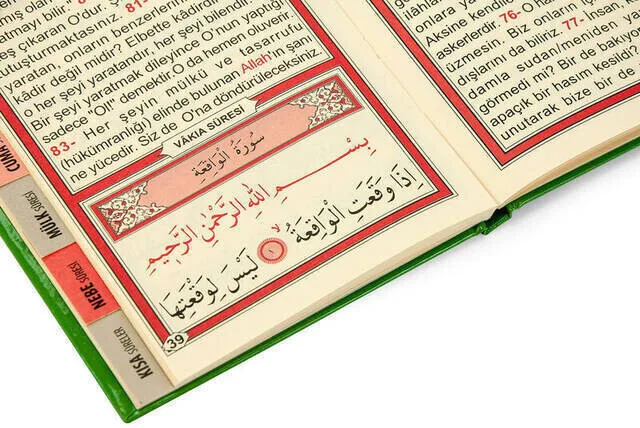 atmayı bilir.
es çıkaran O'dur.
uşturmaktasınız.
yaratan, onların benzerlerini
kâdir değil midir? Elbette kâdirdir.
O her şeyi yaratandır, her şeyi bilendir.
Bir şeyi yaratmak dileyince O'nun yaptığı
sadece "Ol!" demektir. O da hemen oluverir.
83- Her şeyin mülkü ve tasarrufu
(hükümranlığı) elinde bulunan Allah'ın şanı
ne yücedir. Siz de O'na döndürüleceksiniz.
VÂKIA SÛRESİ
سُورَةُ الْوَاقِعَةِ
بِسْمِ اللهِ الرَّحْمٰنِ الرَّحِيمِ
اِذَا وَقَعَتِ الْوَاقِعَةُ ۙ ١ لَيْسَ لِوَقْعَتِهَا
39
CUMA
MÜLK SÛRESİ
NEBE SÛRESİ
KISA SÛRELER
onlara ya
Aksine kendi
askerlerdir. 76- O h
üzmesin. Biz onların
dışlarını da biliriz. 77- İnsan
damla sudan/meniden ya
görmedi mi? Bir de bakıyo
apaçık bir hasım kesildi?
unutarak bize bir de